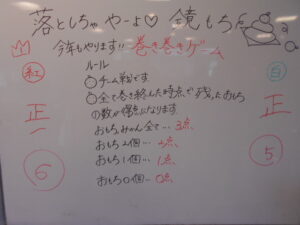 落としちゃやーよ♡ 鏡もち
今年もやります!! 巻き巻きゲーム
ルール
紅
白
○チーム戦です
○全て巻き終えた時点で残ったおもち
の数が得点になります
正一
正
おもち、みかん全て…3点
おもち2個…2点
おもち1個…1点
おもち0個…0点
6
5